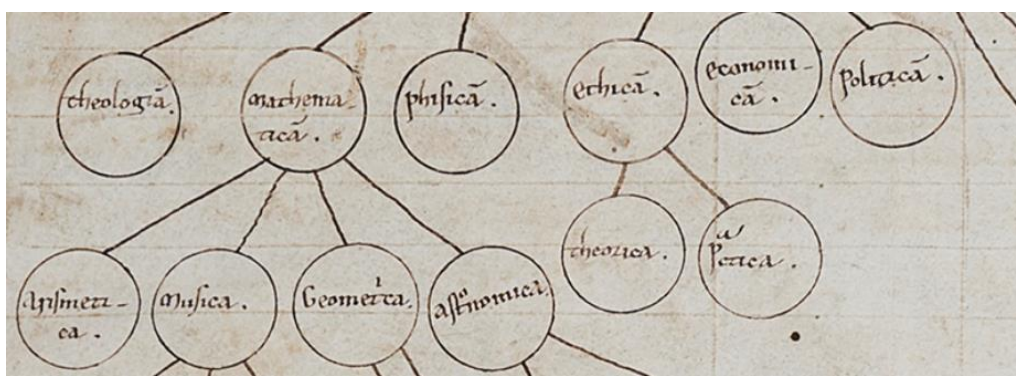 theologiā.
mathema
ticā.
phisicā.
ethicā.
economi-
cā.
politicā.
theorica.
pᵃctica.
Arismeti-
ca.
Musica.
Geometⁱca.
Astᵒnomica.